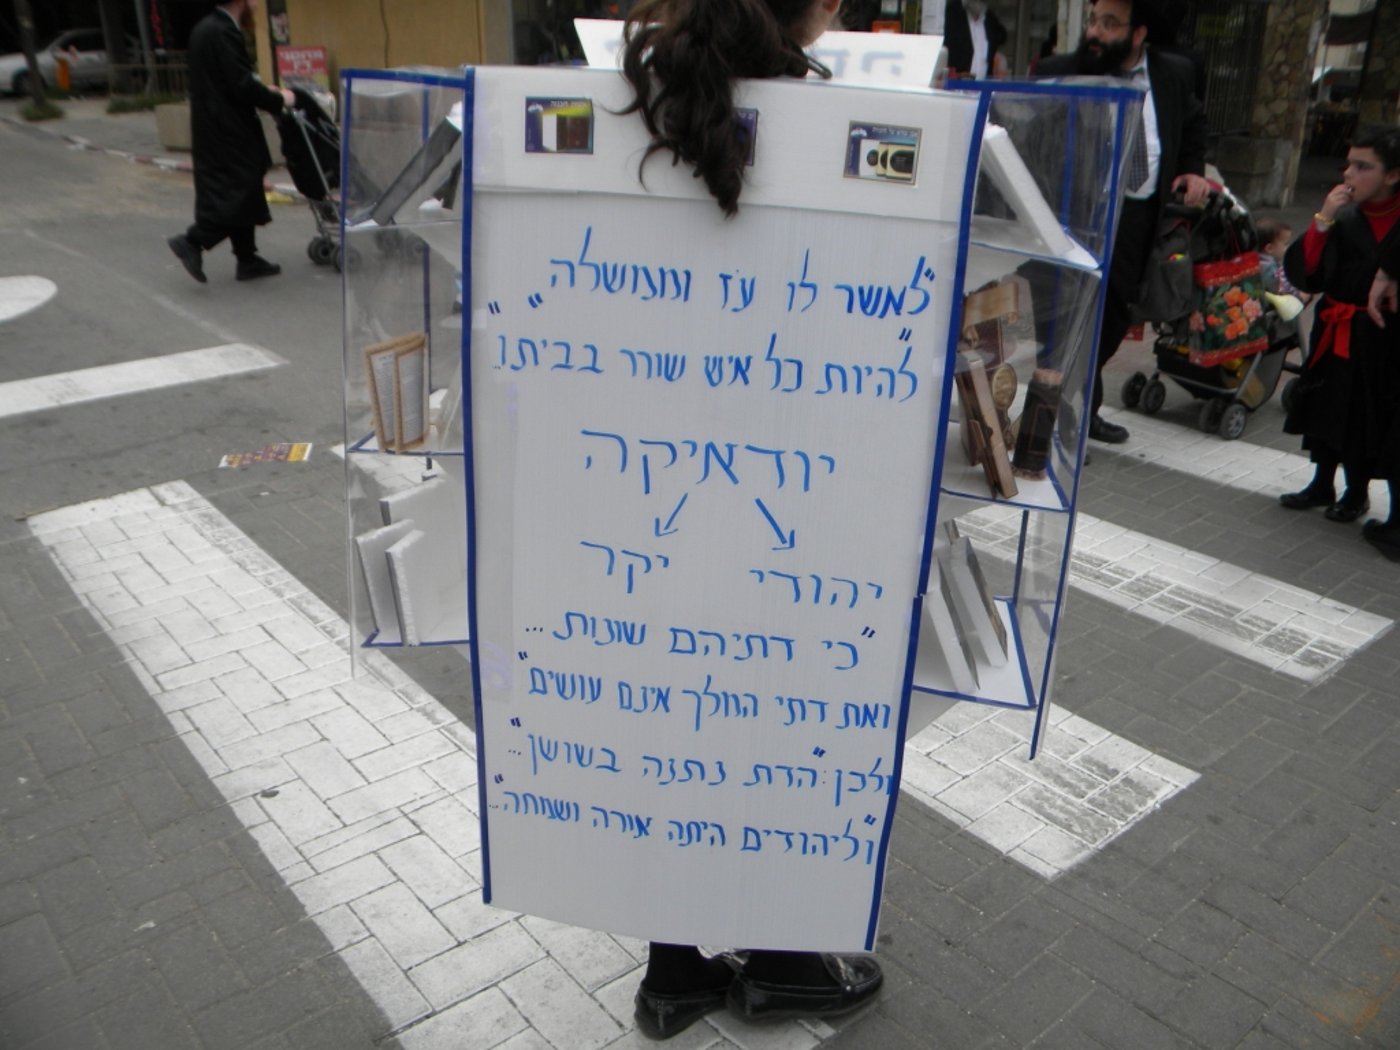 "לאשר לו עז וממשלה"
"להיות כל איש שורר בביתו.."
יודאיקה
יהודי יקר
"כי דתיהם שונות...
ואת דתי המלך אינם עושים"
ולכן: "הדת נתנה בשושן"...
"וליהודים היתה אורה ושמחה"...